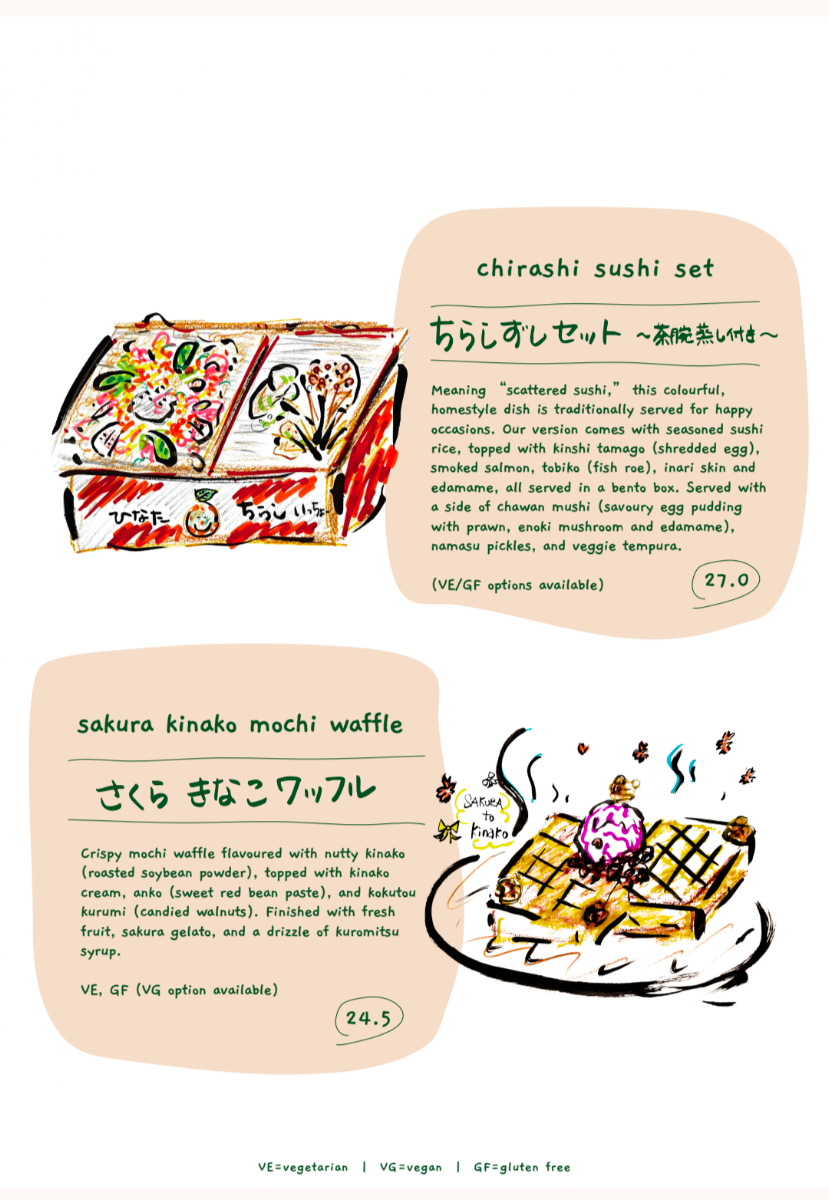 chirashi sushi set
ちらしずしセット 〜茶腕蒸し付き〜
Meaning “scattered sushi,” this colourful,
homestyle dish is traditionally served for happy
occasions. Our version comes with seasoned sushi
rice, topped with kinshi tamago (shredded egg),
smoked salmon, tobiko (fish roe), inari skin and
edamame, all served in a bento box. Served with
a side of chawan mushi (savoury egg pudding
with prawn, enoki mushroom and edamame),
namasu pickles, and veggie tempura.
(VE/GF options available)
27.0
ひなた
ちらしいっちょ
sakura kinako mochi waffle
さくら きなこ ワッフル
Crispy mochi waffle flavoured with nutty kinako
(roasted soybean powder), topped with kinako
cream, anko (sweet red bean paste), and kokutou
kurumi (candied walnuts). Finished with fresh
fruit, sakura gelato, and a drizzle of kuromitsu
syrup.
VE, GF (VG option available)
24.5
SAKURA
to
Kinako
VE=vegetarian | VG=vegan | GF=gluten free